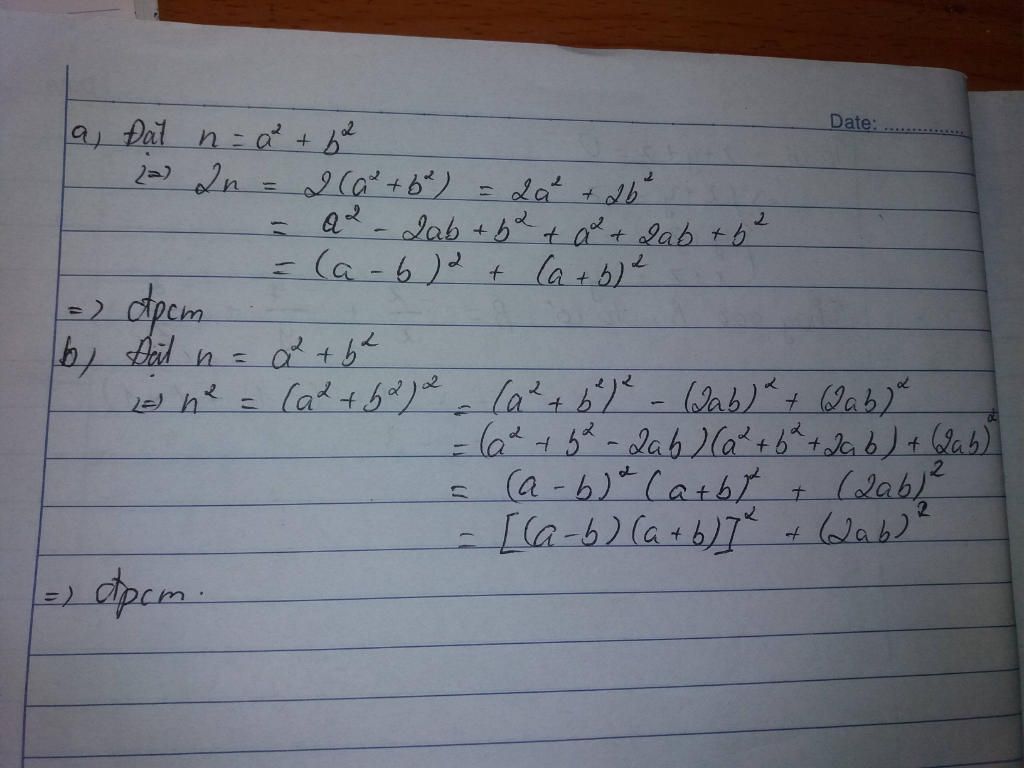 Date: ...............
a, Đặt n = a² + b²
<=> 2n = 2(a² + b²) = 2a² + 2b²
= a² - 2ab + b² + a² + 2ab + b²
= (a - b)² + (a + b)²
=> đpcm
b, Đặt n = a² + b²
<=> n² = (a² + b²)² = (a² + b²)² - (2ab)² + (2ab)²
= (a² + b² - 2ab)(a² + b² + 2ab) + (2ab)²
= (a - b)² (a + b)² + (2ab)²
= [(a - b)(a + b)]² + (2ab)²
=> đpcm.